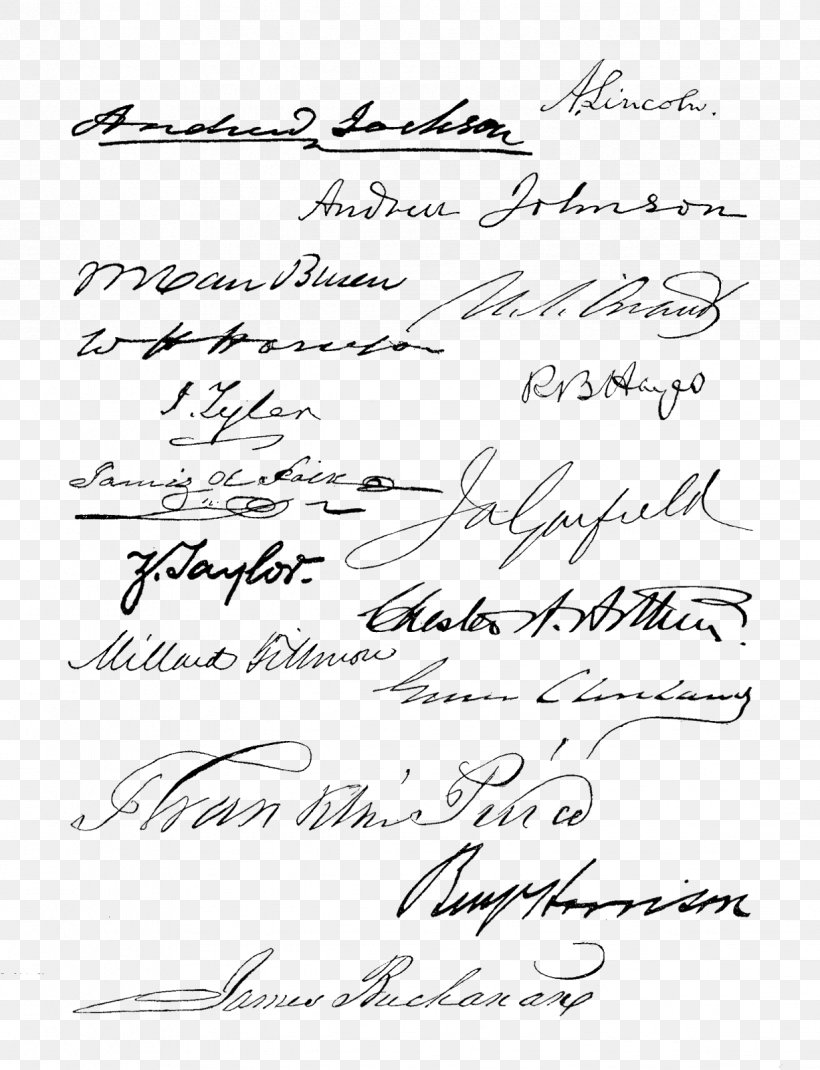 Andrew Jackson
A. Lincoln.
Andrew Johnson
M Van Buren
U. S. Grant
W H Harrison
R B Hayes
J. Tyler
James K. Polk
J. A. Garfield
Z. Taylor.
Chester A. Arthur.
Millard Fillmore
Grover Cleveland
Franklin Pierce
Benj Harrison
James Buchanan